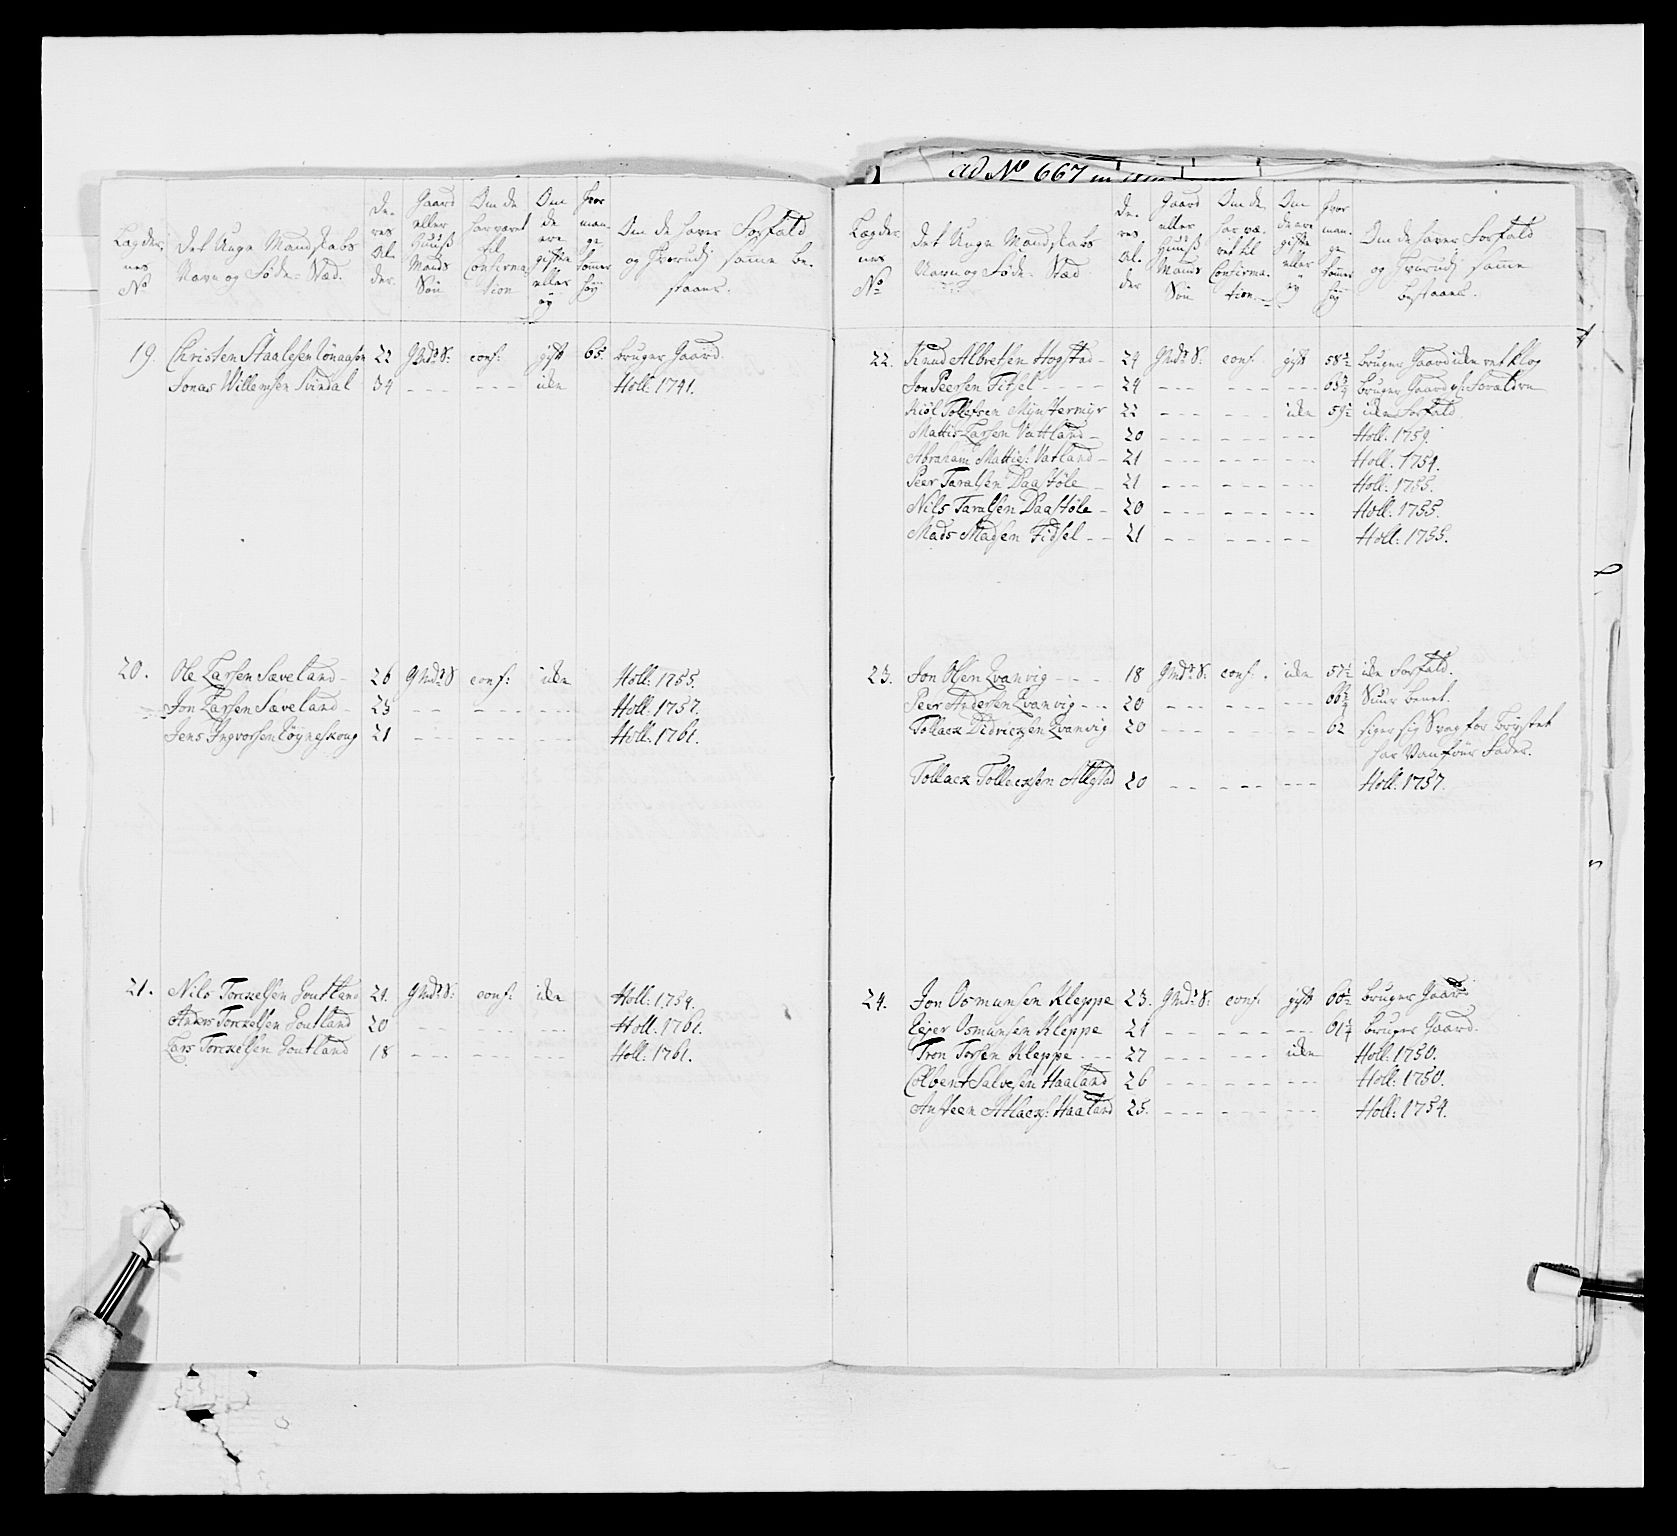 ad No 667
Lægder-
nes
No
Det Unge Mandskabs
Navn og Føde-Stæd.
De-
res
Al-
der.
Gaard
eller
Huuß
Mands
Søn
Om de
har været
til
Confirma-
tion
Om
de
ere
gifte
eller
ey
Hvor
man-
ge
Tommer
høy
Om de haver Forfald
og Hvorudj samme be-
staaer.
19. Christen Staalesen 22 GMds S: conf: gift 65. bruger Gaard.
Jonas Willemsen Svindal 34 - - - - - - iche Holl: 1741.
20. Ole Larsen Sæveland - 26 GMds S conf: iche Holl: 1755.
Jon Larsen Sæveland - 23 - - - - - - - - - Holl: 1757.
Jens Ingvorsen 21 - - - - - - - - - Holl: 1761.
21. Nils Torckelsen Goutland 21. GMds S: conf: iche Holl: 1759.
Anders Torckelsen Goutland 20 - - - - - - - - - Holl: 1761.
Lars Torckelsen Goutland 18 - - - - - - - - - Holl: 1761.
Lægder-
nes
No
Det Unge Mandskabs
Navn og Føde-Stæd
De-
res
Al-
der
Gaard
eller
Huuß
Mands
Søn
Om de
har væ-
ret til
Confirma-
tion
Om
de ere
gifte
eller
ey
Hvor
man-
ge
Tommer
høy
Om de haver Forfald
og Hvorudj samme
bestaaer.
22. Knud Albretsen Hogstad - 24 GMds S: conf gift 58½ bruger Gaard iche ret klog
Jon Peersen Fidsel - - - 24 - - - - - - - - - bruger Gaard
Kiøl Tollefsen 22 - - - - - - iche iche Forfald.
Mattis Larsen Vatland - 20 - - - - - - - - - Holl: 1759.
Abraham Mattis: Vatland - 21 - - - - - - - - - Holl: 1754.
Peer Taralsen Daastøle - 21 - - - - - - - - - Holl: 1755.
Nils Taralsen Daastøle - 20 - - - - - - - - - Holl: 1755.
Mads Madsen Fidsel - - 21 - - - - - - - - - Holl: 1755.
23. Jon Olsen Qvanvig - - - 18 GMds S: conf: iche 57½ iche Forfald.
Peer Andersen Qvanvig - - 20 - - - - - - - - - benet.
Tollack Didricksen Qvanvig 20 - - - - - - - - - 62 siger sig Svag for Brystet
har Vanfør Fader.
Tollack Tollacksen 20 - - - - - - - - - Holl: 1757.
24. Jon Osmunsen Kleppe 23. GMds S: conf: gift bruger Gaard
Osmunsen Kleppe 21 - - - - - - - - - bruger Gaard.
Tron Torsen Kleppe - - 27 - - - - - - iche Holl: 1750.
Colbent Salvesen Haaland 26 - - - - - - - - - Holl: 1750.
Ansteen Atlack: Haaland 25. - - - - - - - - - Holl: 1754.